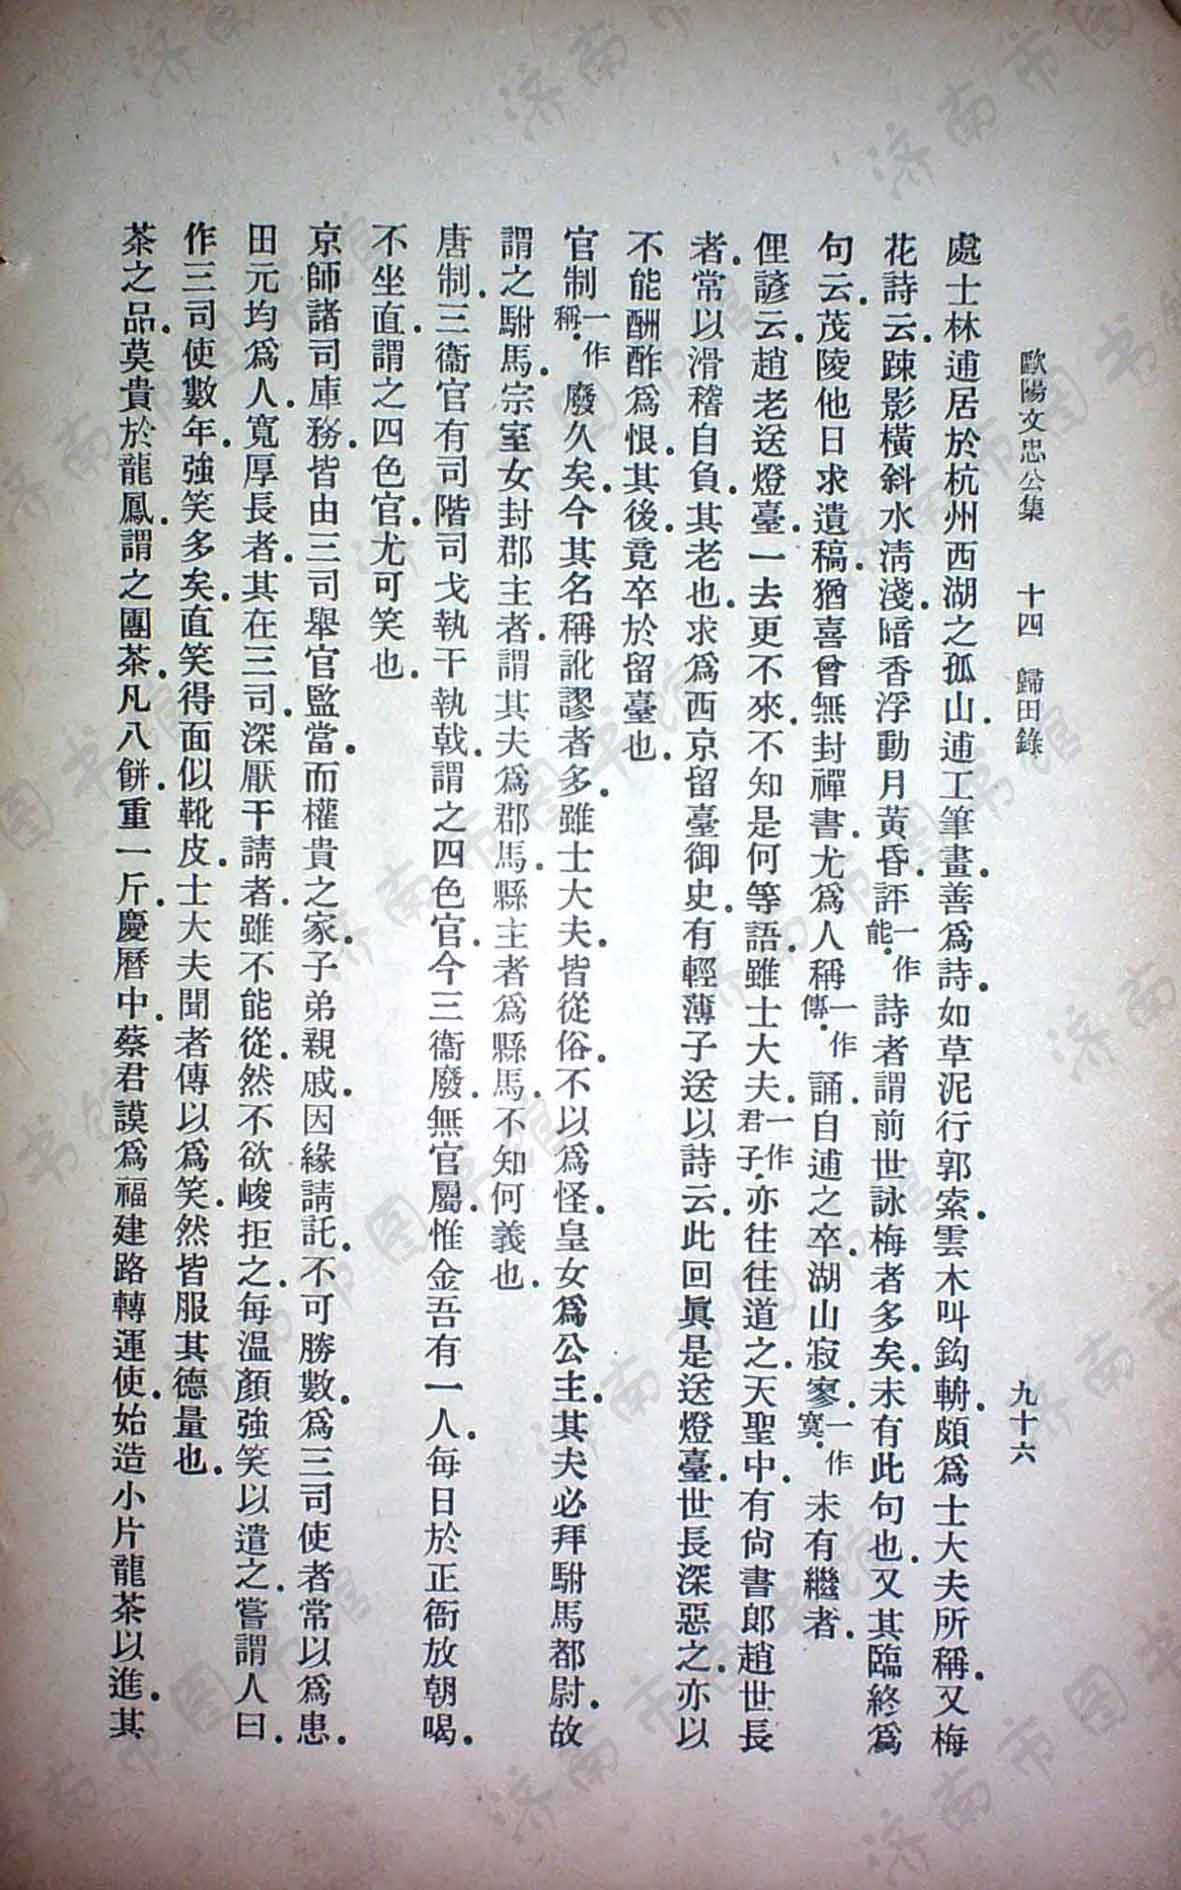 歐陽文忠公集 十四 歸田錄 九十六
處士林逋居於杭州西湖之孤山.逋工筆畫.善爲詩.如草泥行郭索.雲木叫鈎輈.頗爲士大夫所稱.又梅
花詩云.疎影橫斜水淸淺.暗香浮動月黃昏.評一作能.詩者謂前世詠梅者多矣.未有此句也.又其臨終爲
句云.茂陵他日求遺稿.猶喜曾無封禪書.尤爲人稱一作傳.誦.自逋之卒.湖山寂寥.一作寞.未有繼者.
俚諺云.趙老送燈臺.一去更不來.不知是何等語.雖士大夫.一作君子.亦往往道之.天聖中.有尙書郎趙世長
者.常以滑稽自負.其老也.求爲西京留臺御史.有輕薄子送以詩云.此回眞是送燈臺.世長深惡之.亦以
不能酬酢爲恨.其後.竟卒於留臺也.
官制一作稱.廢久矣.今其名稱訛謬者多.雖士大夫.皆從俗.不以爲怪.皇女爲公主.其夫必拜駙馬都尉.故
謂之駙馬.宗室女封郡主者.謂其夫爲郡馬.縣主者爲縣馬.不知何義也.
唐制.三衞官有司階司戈執干執戟.謂之四色官.今三衞廢.無官屬.惟金吾有一人.每日於正衙放朝喝.
不坐直.謂之四色官.尤可笑也.
京師諸司庫務.皆由三司舉官監當.而權貴之家.子弟親戚.因緣請託.不可勝數.爲三司使者常以爲患.
田元均爲人.寬厚長者.其在三司.深厭干請者.雖不能從.然不欲峻拒之.每溫顏強笑以遣之.嘗謂人曰.
作三司使數年.強笑多矣.直笑得面似靴皮.士大夫聞者傳以爲笑.然皆服其德量也.
茶之品.莫貴於龍鳳.謂之團茶.凡八餅.重一斤.慶曆中.蔡君謨爲福建路轉運使.始造小片龍茶以進.其
济南市图书馆